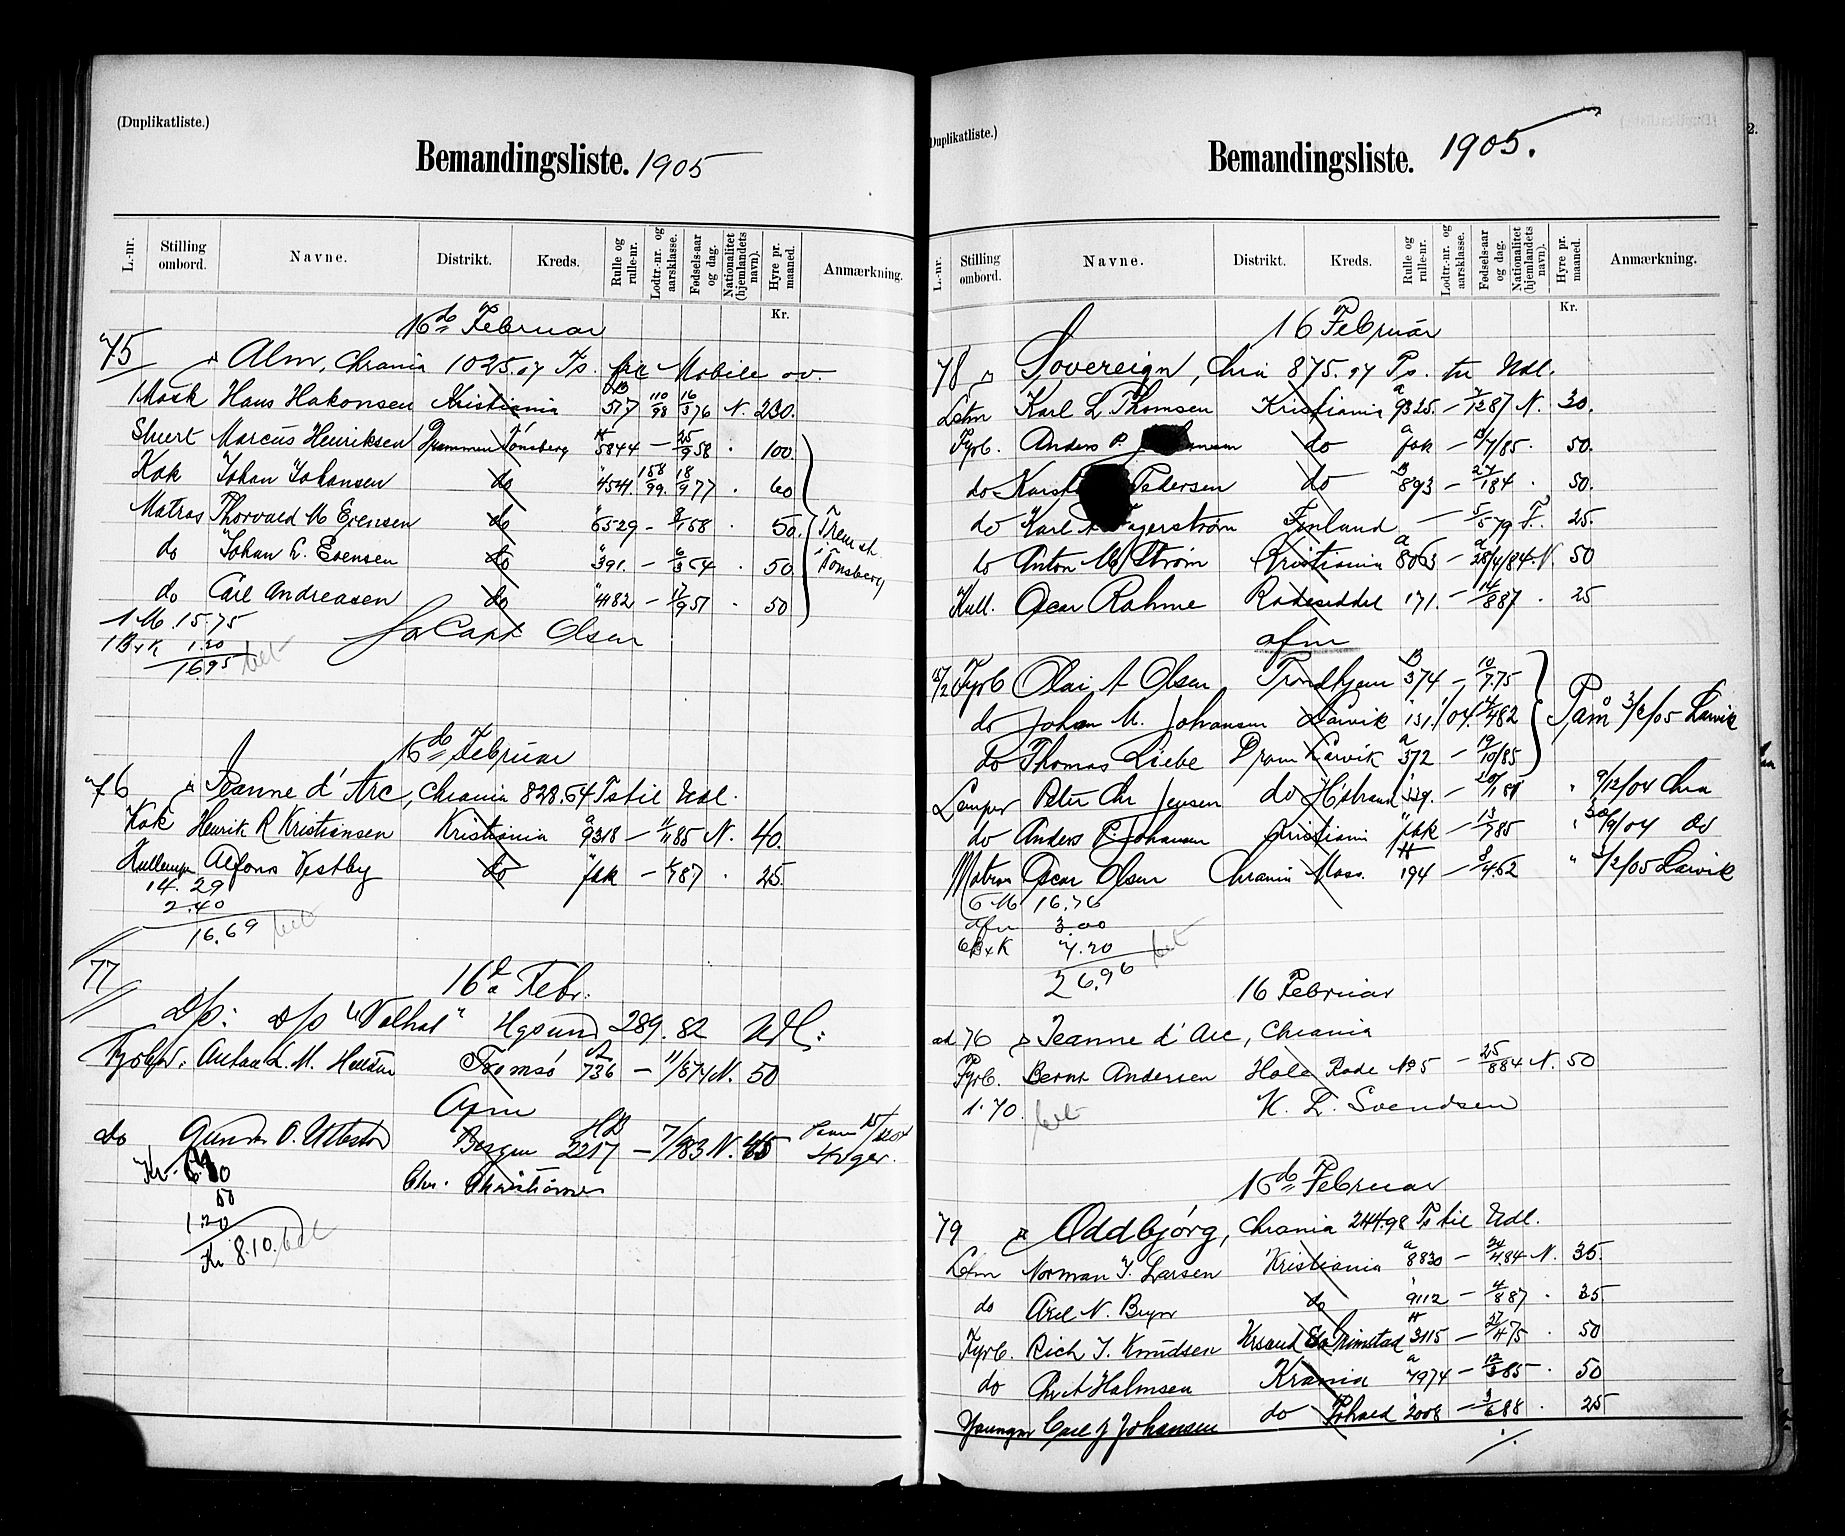 (Duplikatliste.)
Bemandingsliste. 1905
L.-nr.
Stilling ombord.
Navne.
Distrikt.
Kreds.
Rulle og rulle-nr.
Lodtr.-nr. og aarsklasse.
Fødsels-aar og dag.
Nationalitet (hjemlandets navn).
Hyre pr. maaned.
Anmærkning.
Kr.
16de Februar
75 Alm, Chrania 1025.07 Ts. fra Mobile ov.
1 Mask Hans Hakonsen Kristiania 517 110/98 16/576 N. 230.
Stuert Marcus Henriksen Drammen Tönsberg 5844 — 25/958 . 100.
Kok Johan Johansen do 4541 158/99. 18/977 . 60
Matros Thorvald M Evensen do 6529 — 8/158 . 50. Frem st.
do Johan L. Evensen do 391. — 6/364 . 50 i Tönsberg
do Carl Andreasen do 4182 — 17/951 . 50
1 M. 15.75
for Capt Olsen
1 B & K 1.20
16.95 bet
16de Februar
76 Jeanne d' Arc, Chrania 828.64 Ts til Udl.
Kok Henrik R Kristiansen Kristiania 9318 — 11/1185 N. 40.
Kullemper Alfons Vestby do fak — 1/787 . 25.
14.29
2.40
16.69 bet
77
16d Febr.
D/p: D/p "Valhal" Hgsund 289.82 Udl:
Fyrbød. Anton L. M. Tromsø 736 — 11/674 N. 50
Afm
do Gunder O. Bergen 2217 — 7/983 N. 45
Kr. 6.40
50
1.20
Kr 8.10. bet
Chr. Christiansen
(Duplikatliste.)
Bemandingsliste. 1905.
L.-nr.
Stilling ombord.
Navne.
Distrikt.
Kreds.
Rulle og rulle-nr.
Lodtr.-nr. og aarsklasse.
Fødsels-aar og dag.
Nationalitet (hjemlandets navn).
Hyre pr. maaned.
Anmærkning.
Kr.
16 Februar
78 Sovereign, Chria 875.97 Ts. til Udl.
Letm Karl L Thomsen Kristiania 9325. — 7/1287 N. 30.
Fyrb. Anders P. do fak — /7/85. 50.
do Pedersen do 893 — 27/184 . 50.
do Karl A Fagerström Finland — 5/579 F. 25.
do Anton M Ström Kristiania 8063 — 28/4/84. N. 50
Kull. Oscar Rahme Rodeseddel 171. — 16/887 . 25
afm
Fyrb Olai A Olsen Trondhjem 374 — 10/775
do Johan M. Johansen Larvik 131. 1/04. 482 Paam 3/2/05 Larvik
do Thomas Liebe Dram Larvik 372 — 19/10/85
Lemper Peter Chr Jensen do Holmestrand 329. — " 9/12/04 Chra
do Anders E. Johansen Kristiania fak — 13/785 " 30/9/04 do
Matros Oscar Olsen Chrania Moss. 194 — 8/462 " /2/05 Larvik
6 M 16.76
afm 3.00
6 B & K 7.20
26.96 bet
16 Februar
ad 76 Jeanne d' Arc, Chrania
Fyrb. Bernt Andersen Hole Rode No 5 — 25/884 N. 50
1.70. bet K. L. Svendsen
16de Februar
79 Oddbjörg, Chrania 244.98 Ts til Udl.
Letm Norman J. Larsen Kristiania 8830 — 24/484 N. 35.
do Axel N. do 9112 — 4/887 . 35.
Fyrb. Rich J. Knudsen Krsand Grimstad 3115 — 27/475 . 50
do Chr A Halmsen Krania 7974 — 12/385 . 50
Youngm Carl J Johansen do 2008 — 3/688 . 25
./.